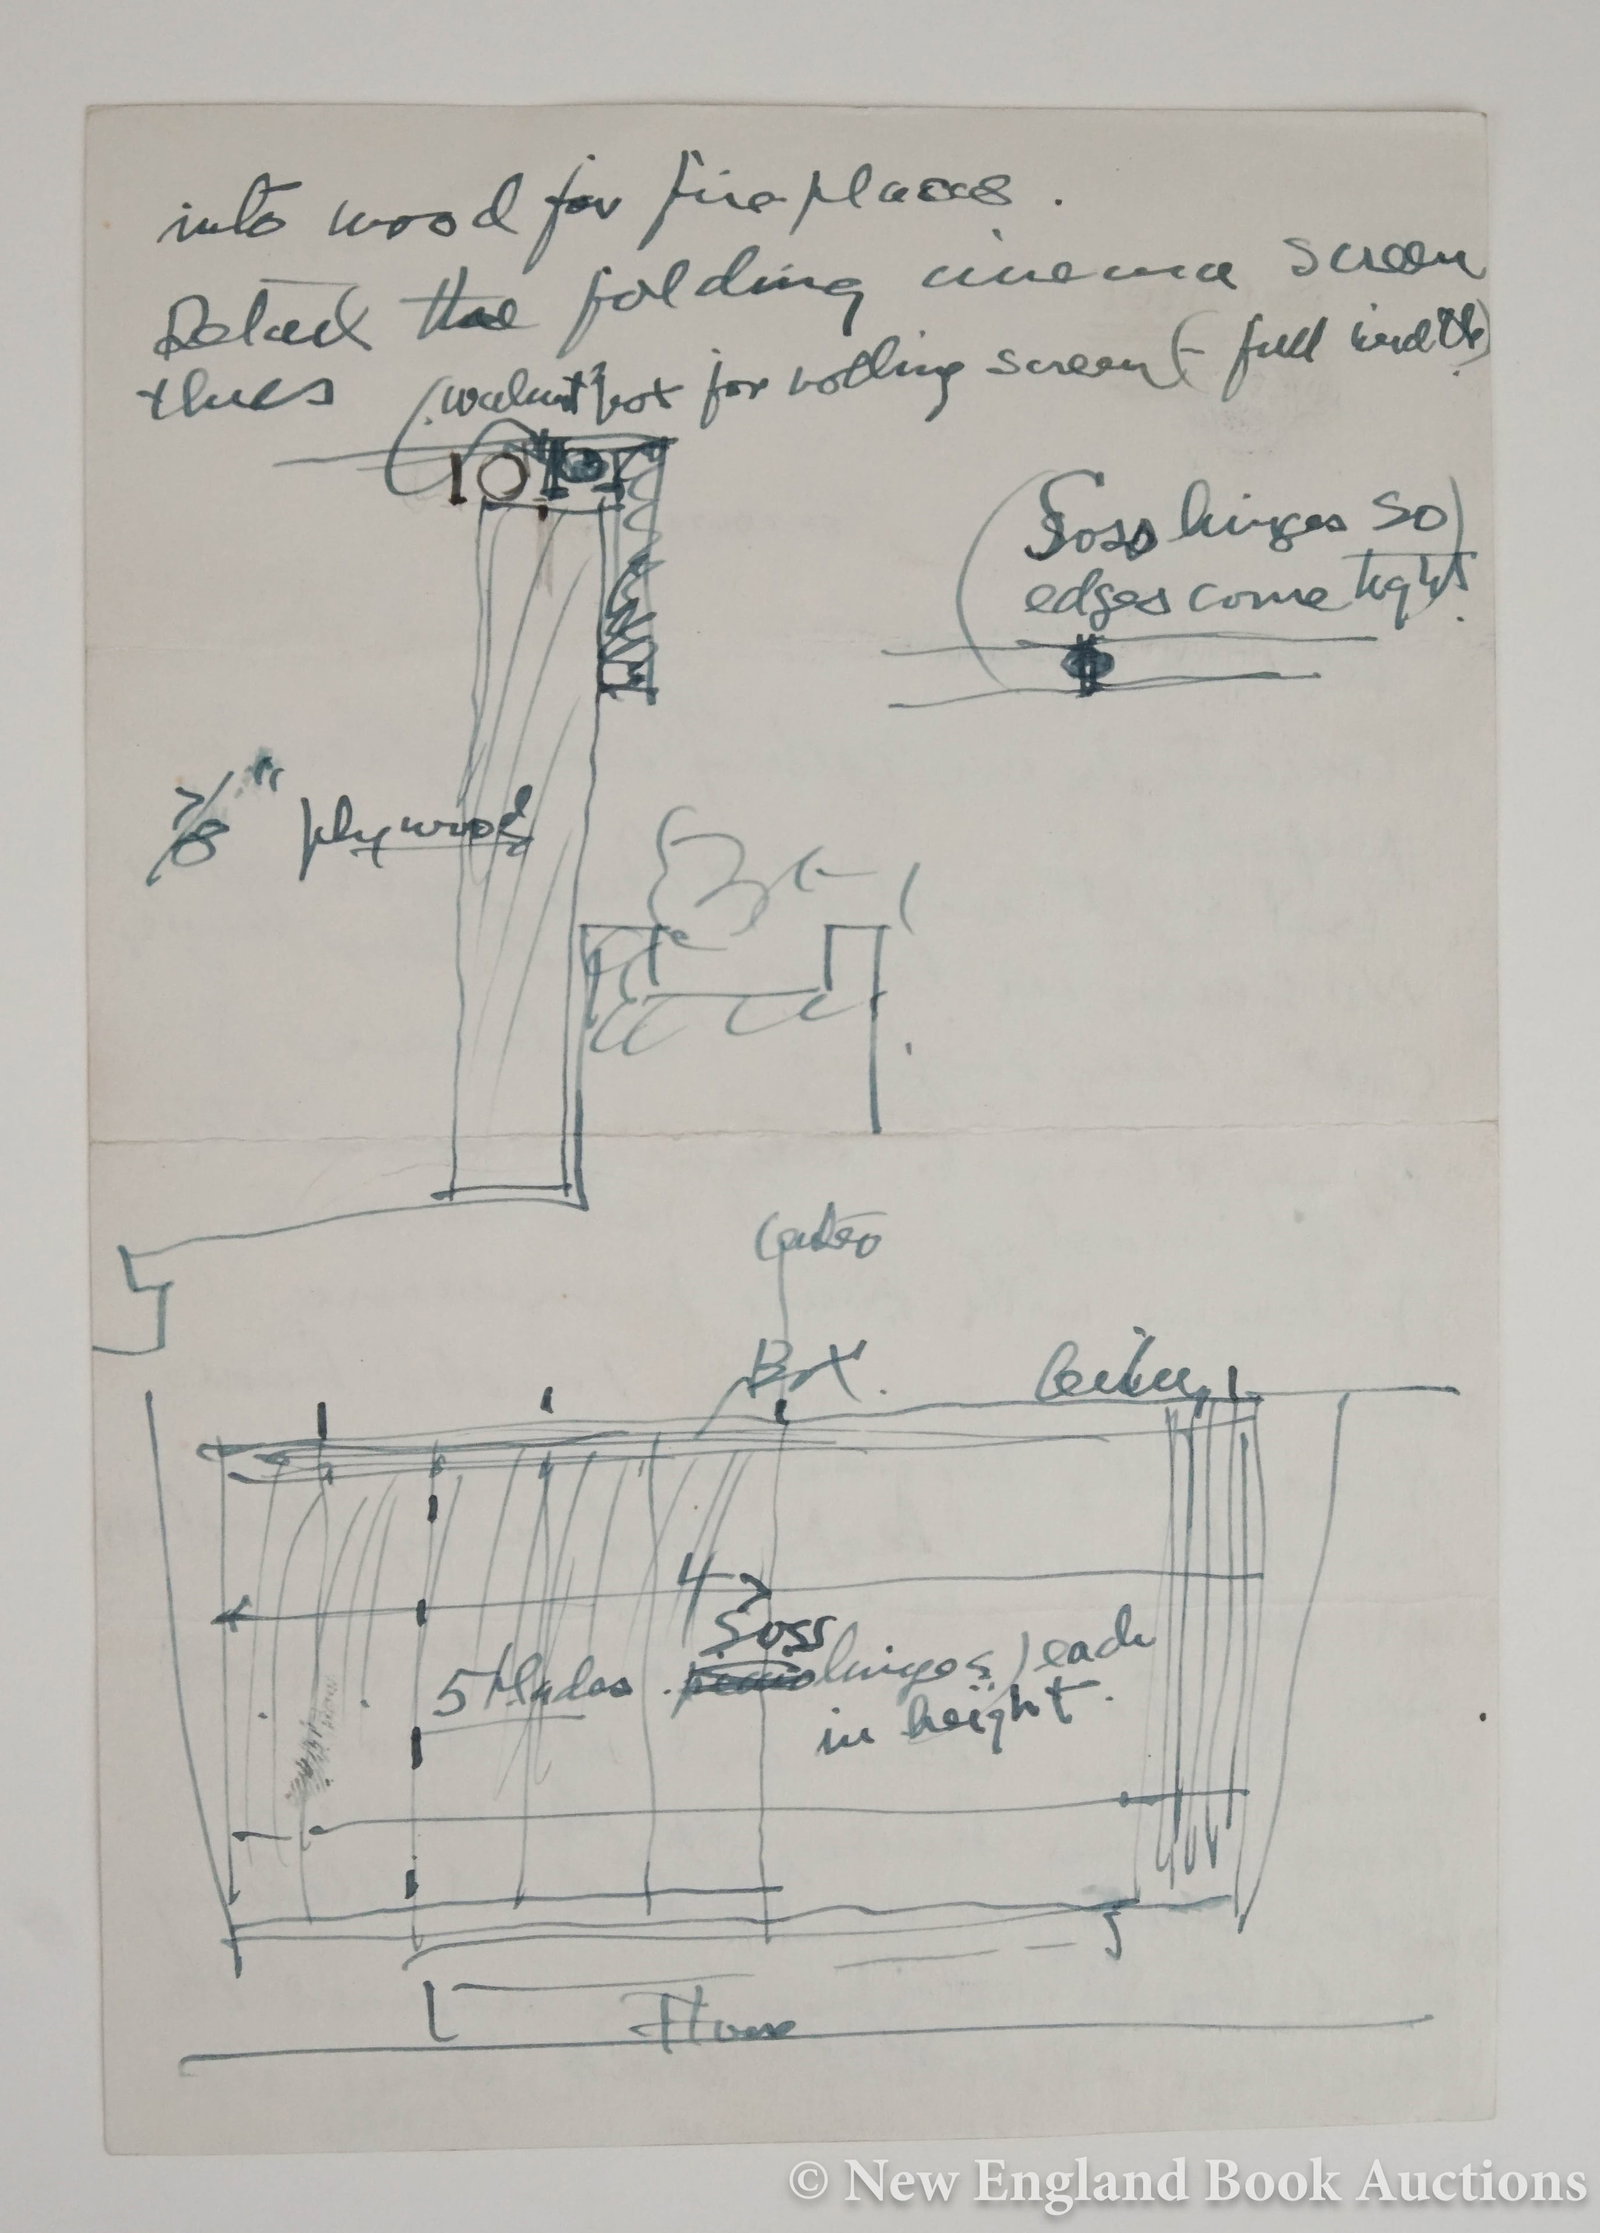 into wood for fireplaces.
Detail the folding cinema screen
thus (walnut box for rolling screen (- full width)
(Soss hinges so
edges come tight.)
7/8" plywood
Center
Box.
Ceiling
4
Soss
5 blades hinges, each
in height.
Floor
© New England Book Auctions